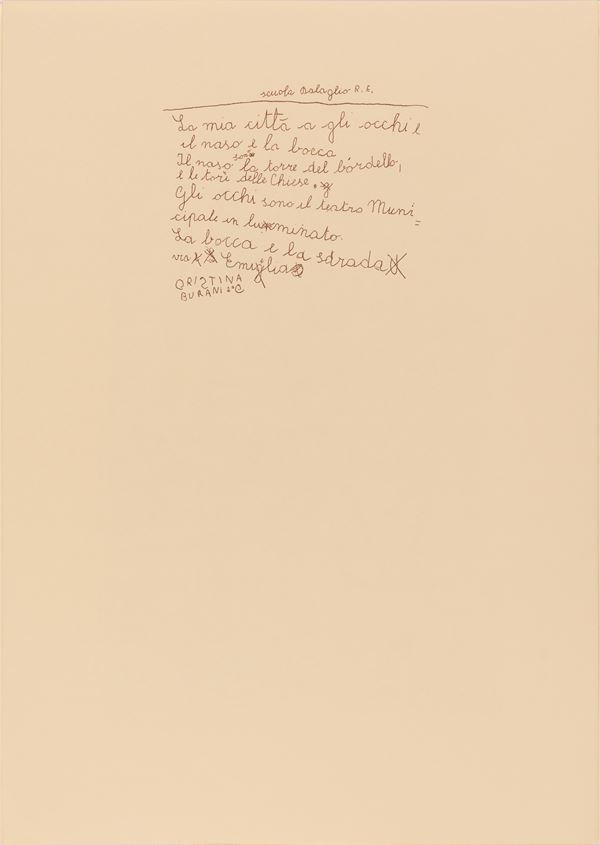 scuola Balaglio R.E.
La mia città a gli occhi e
il naso e la bocca
Il naso sono la torre del bordello,
e le tori delle Chiese.
Gli occhi sono il teatro Muni=
cipale in luminato.
La bocca e la sdrada
via Emiglia
CRISTINA
BURANI 2ª C